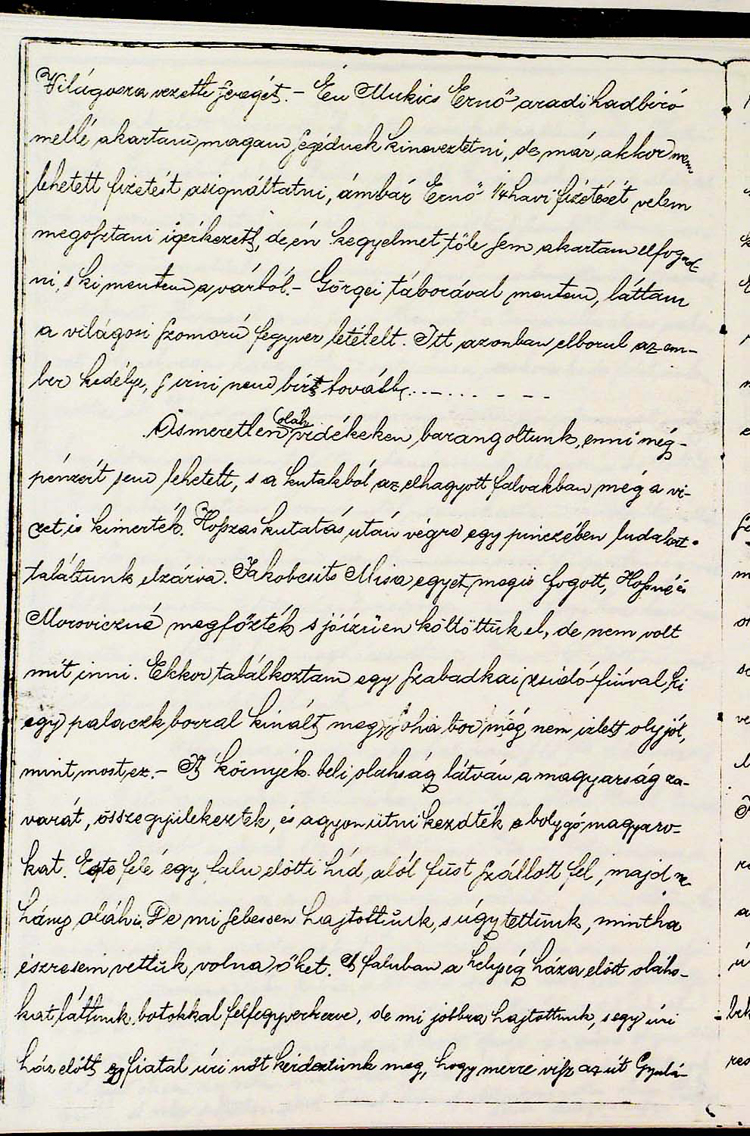 Világosra vezette seregét. – Én Mukics Ernő aradi hadbiró
mellé akartam magam segédnek kineveztetni, de már akkor nem
lehetett fizetést asignáltatni, ámbár Ernő ¼ havi fizetését velem
megosztani igérkezett, de én kegyelmet tőle sem akartam elfogad-
ni, s kimentem a várból. – Görgei táborával mentem, láttam
a világosi szomorú fegyver letételt. Itt azonban elborul az em-
ber kedélye, s irni nem birt tovább, . . . - . . . . - - -
Ösmeretlen oláh vidékeken barangoltunk, enni még
pénzért sem lehetett, s a kutakból az elhagyott falvakban még a vi-
zet is kimerték. Hosszas kutatás után végre egy pinczében ludakat
találtunk elzárva. Jakobcsits Misa egyet meg is fogott, és
Moroviczné megfőzték s jóizüen költöttük el, de nem volt
mit inni. Ekkor találkoztam egy szabadkai zsidó fiúval, ki
egy palaczk borral kinált meg, soha bor még nem izlett oly jól,
mint most ez. – A környék beli oláhság látván a magyarság za-
varát, összegyülekeztek, és agyon ütni kezdték a bolygó magyaro-
kat. Este felé egy falu előtti híd alól füst szállott fel, majd né-
hány oláh is. De mi sebessen hajtottunk, s úgy tettünk, mintha
észre sem vettük volna őket. A faluban a helység háza előtt oláho-
kat láttunk botokkal felfegyverkezve, de mi jobbra hajtottunk, s egy úri
ház előtt egy fiatal úri nőt kérdeztünk meg, hogy merre visz az út Gyulá-